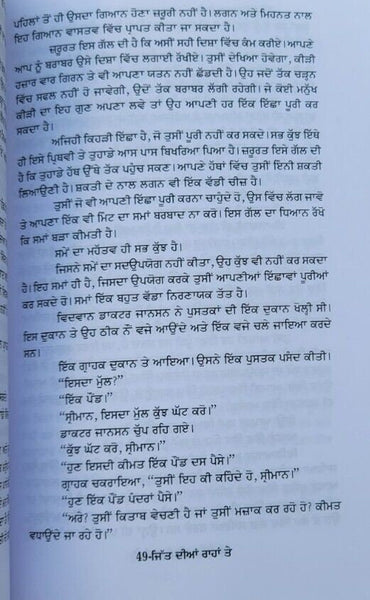 ਪਹਿਲਾਂ ਤੋਂ ਹੀ ਉਸਦਾ ਗਿਆਨ ਹੋਣਾ ਜ਼ਰੂਰੀ ਨਹੀਂ ਹੈ। ਲਗਨ ਅਤੇ ਮਿਹਨਤ ਨਾਲ
ਇਹ ਗਿਆਨ ਵਾਸਤਵ ਵਿੱਚ ਪ੍ਰਾਪਤ ਕੀਤਾ ਜਾ ਸਕਦਾ ਹੈ।
ਜ਼ਰੂਰਤ ਇਸ ਗੱਲ ਦੀ ਹੈ ਕਿ ਅਸੀਂ ਸਹੀ ਦਿਸ਼ਾ ਵਿੱਚ ਕੰਮ ਕਰੀਏ। ਆਪਣੇ
ਆਪ ਨੂੰ ਬਰਾਬਰ ਉਸੇ ਦਿਸ਼ਾ ਵਿੱਚ ਲਗਾਈ ਰੱਖੀਏ। ਤੁਸੀਂ ਦੇਖਿਆ ਹੋਵੇਗਾ, ਕੀੜੀ
ਹਜ਼ਾਰ ਵਾਰ ਗਿਰਨ ਤੇ ਵੀ ਆਪਣਾ ਯਤਨ ਨਹੀਂ ਛੱਡਦੀ ਹੈ। ਉਹ ਜਦੋਂ ਤੱਕ ਚੜ੍ਹਨ
ਵਿੱਚ ਸਫਲ ਨਹੀਂ ਹੋ ਜਾਵੇਗੀ, ਉਦੋਂ ਤੱਕ ਬਰਾਬਰ ਲੱਗੀ ਰਹੇਗੀ। ਜੇ ਕੋਈ ਮਨੁੱਖ
ਕੀੜੀ ਦਾ ਇਹ ਗੁਣ ਅਪਣਾ ਲਵੇ ਤਾਂ ਉਹ ਆਪਣੀ ਹਰ ਇੱਕ ਇੱਛਾ ਪੂਰੀ ਕਰ
ਸਕਦਾ ਹੈ।
ਅਜਿਹੀ ਕਿਹੜੀ ਇੱਛਾ ਹੈ, ਜੋ ਤੁਸੀਂ ਪੂਰੀ ਨਹੀਂ ਕਰ ਸਕਦੇ। ਸਭ ਕੁੱਝ ਇੱਥੇ
ਹੀ ਇਸੇ ਪ੍ਰਿਥਵੀ ਤੇ ਤੁਹਾਡੇ ਆਸ ਪਾਸ ਬਿਖਰਿਆ ਪਿਆ ਹੈ। ਜ਼ਰੂਰਤ ਇਸ ਗੱਲ ਦੀ
ਹੈ ਕਿ ਤੁਹਾਡੇ ਹੱਥ ਉੱਥੇ ਤੱਕ ਪਹੁੰਚ ਸਕਣ। ਆਪਣੇ ਹੱਥਾਂ ਵਿੱਚ ਤੁਸੀਂ ਇਨੀ ਸ਼ਕਤੀ
ਲਿਆਉਣੀ ਹੈ। ਸ਼ਕਤੀ ਦੇ ਨਾਲ ਲਗਨ ਵੀ ਇੱਕ ਵੱਡੀ ਚੀਜ਼ ਹੈ।
ਤੁਸੀਂ ਜੋ ਵੀ ਆਪਣੀ ਇੱਛਾ ਪੂਰੀ ਕਰਨਾ ਚਾਹੁੰਦੇ ਹੋ, ਉਸ ਵਿੱਚ ਲੱਗ ਜਾਵੋ
ਤੇ ਆਪਣਾ ਇੱਕ ਵੀ ਮਿੰਟ ਦਾ ਸਮਾਂ ਬਰਬਾਦ ਨਾ ਕਰੋ। ਇਸ ਗੱਲ ਦਾ ਧਿਆਨ ਰੱਖੋ
ਕਿ ਸਮਾਂ ਬੜਾ ਕੀਮਤੀ ਹੈ।
ਸਮੇਂ ਦਾ ਮਹੱਤਵ ਹੀ ਸਭ ਕੁੱਝ ਹੈ।
ਜਿਸਨੇ ਸਮੇਂ ਦਾ ਸਦਉਪਯੋਗ ਨਹੀਂ ਕੀਤਾ, ਉਹ ਕੁੱਝ ਵੀ ਨਹੀਂ ਕਰ ਸਕਦਾ
ਹੈ। ਇਹ ਸਮਾਂ ਹੀ ਹੈ, ਜਿਸਦਾ ਉਪਯੋਗ ਕਰਕੇ ਤੁਸੀਂ ਆਪਣੀਆਂ ਇੱਛਾਵਾਂ ਪੂਰੀਆਂ
ਕਰ ਸਕਦੇ ਹੋ। ਸਮਾਂ ਇੱਕ ਬਹੁਤ ਵੱਡਾ ਨਿਰਣਾਯਕ ਤੱਤ ਹੈ।
ਵਿਦਵਾਨ ਡਾਕਟਰ ਜਾਨਸਨ ਨੇ ਪੁਸਤਕਾਂ ਦੀ ਇੱਕ ਦੁਕਾਨ ਖੋਲ੍ਹੀ ਸੀ।
ਇਸ ਦੁਕਾਨ ਤੇ ਉਹ ਠੀਕ ਨੌ ਵਜੇ ਆਉਂਦੇ ਅਤੇ ਇੱਕ ਵਜੇ ਚਲੇ ਜਾਇਆ ਕਰਦੇ
ਸਨ।
ਇੱਕ ਗ੍ਰਾਹਕ ਦੁਕਾਨ ਤੇ ਆਇਆ। ਉਸਨੇ ਇੱਕ ਪੁਸਤਕ ਪਸੰਦ ਕੀਤੀ।
"ਇਸਦਾ ਮੁੱਲ?"
"ਇੱਕ ਪੌਂਡ।"
"ਸ੍ਰੀਮਾਨ, ਇਸਦਾ ਮੁੱਲ ਕੁੱਝ ਘੱਟ ਕਰੋ।"
ਡਾਕਟਰ ਜਾਨਸਨ ਚੁੱਪ ਰਹਿ ਗਏ।
"ਕੁੱਝ ਘੱਟ ਕਰੋ, ਸ੍ਰੀਮਾਨ।"
"ਹੁਣ ਇਸਦੀ ਕੀਮਤ ਇੱਕ ਪੌਂਡ ਦਸ ਪੈਸੇ।"
ਗ੍ਰਾਹਕ ਚਕਰਾਇਆ, "ਤੁਸੀਂ ਇਹ ਕੀ ਕਹਿੰਦੇ ਹੋ, ਸ੍ਰੀਮਾਨ।"
"ਹੁਣ ਇੱਕ ਪੌਂਡ ਪੰਦਰਾਂ ਪੈਸੇ।"
"ਅਰੇ? ਤੁਸੀਂ ਕਿਤਾਬ ਵੇਚਣੀ ਹੈ ਜਾਂ ਤੁਸੀਂ ਮਜ਼ਾਕ ਕਰ ਰਹੇ ਹੋ? ਕੀਮਤ
ਵਧਾਉਂਦੇ ਜਾ ਰਹੇ ਹੋ।"
49-ਜਿੱਤ ਦੀਆਂ ਰਾਹਾਂ ਤੇ